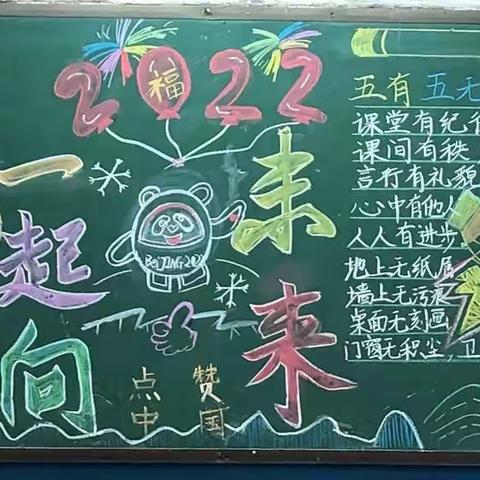 2022
福
一起向
未来
BeiJING202
点赞
中国
五有 五无
课堂有纪
课间有秩
言行有礼貌
心中有他人
人人有进步
地上无纸屑
墙上无污痕
桌面无刻画
门窗无积尘，卫